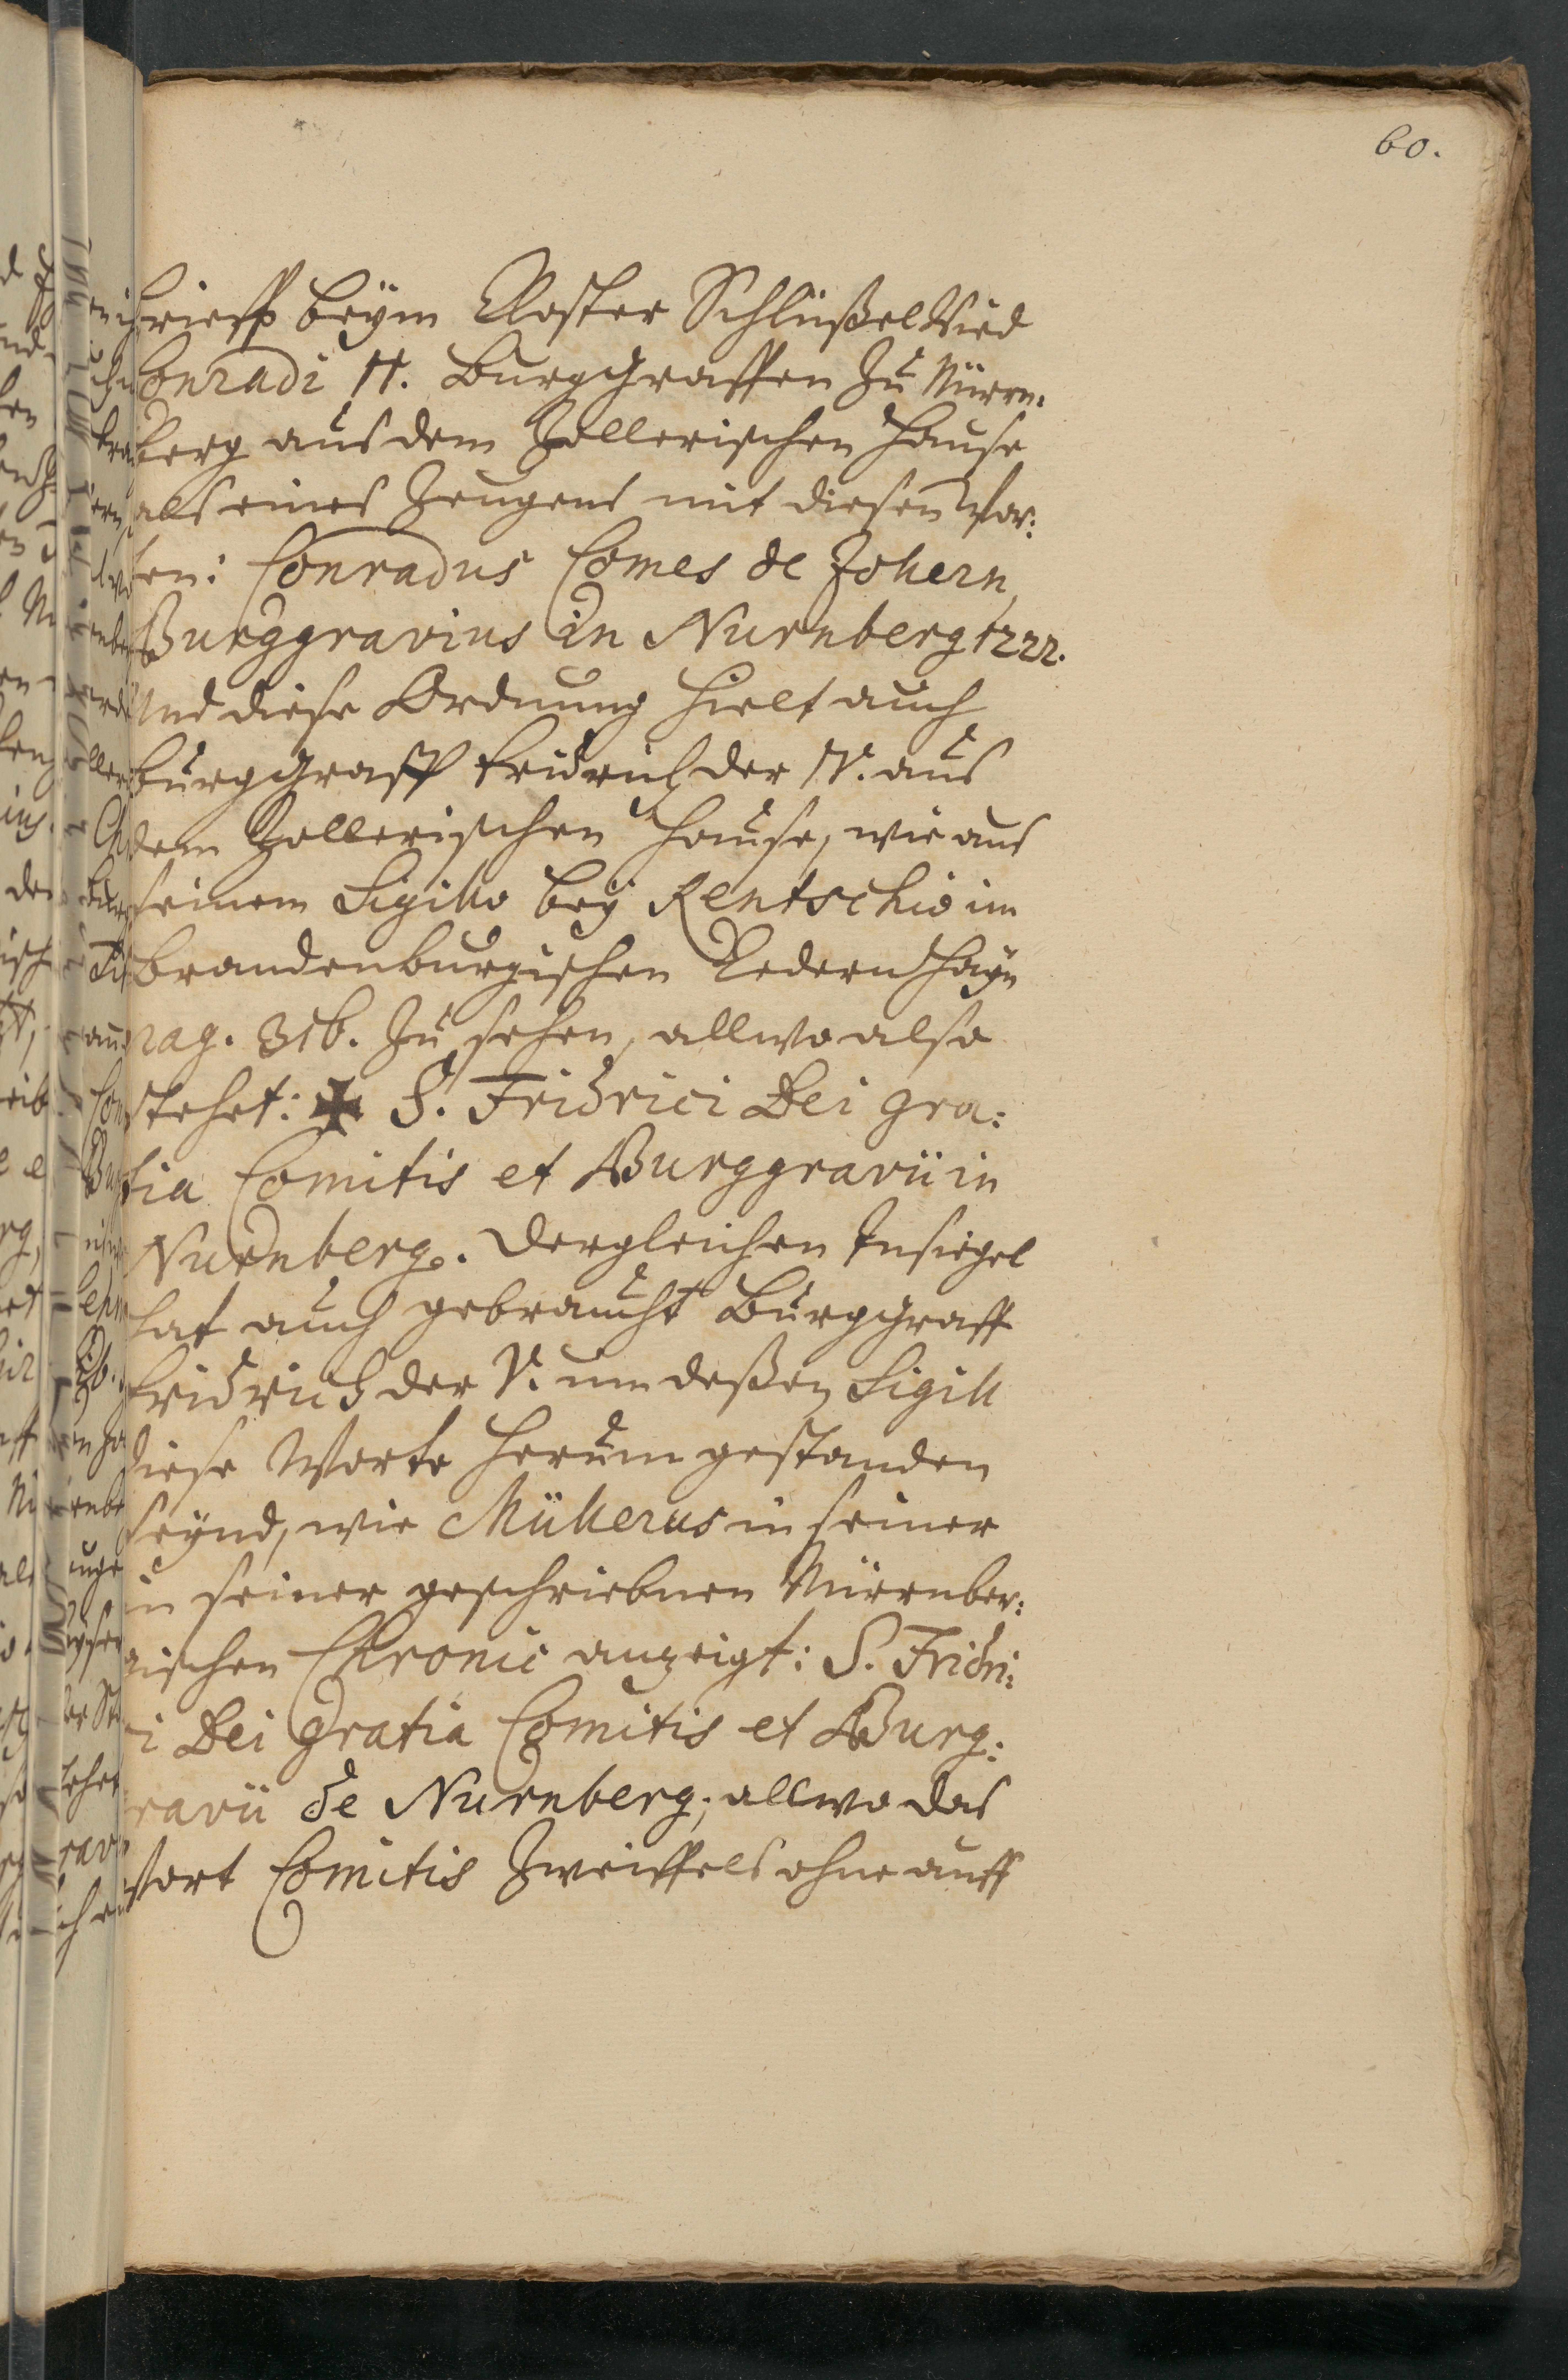 60.
brieff beÿm Closter Schlüßel wird
Conradi II. Burggraffen zu Nürn-
berg aus dem Zollerischen Hause
als eines Zeugens mit diesen Wor:
ten: Conradus Comes de Zollern,
Burggravius in Nurnberg 1222.
Und diese Ordnung hielt auch
Burggraff Fridrich der IV. aus
dem Zollerischen Hause, wie aus
seinem Sigillo beÿ Rentschio im
Brandenburgischen Cedern Haÿn
pag. 316. zu sehen, allwo also
stehet: ✠ S. Fridrici Dei gra:
tia Comitis et Burggravii in
Nurnberg. Dergleichen Insiegel
hat auch gebraucht Burggraff
Fridrich der V. um deßen Sigill
diese Worte herum gestanden
seÿnd, wie Müllerus in seiner
in seiner geschriebnen Nürnber:
gischen Chronic anzeigt: S. Fridri:
ci Dei Gratia Comitis et Burg:
gravii de Nurnberg; allwo das
Wort Comitis Zweiffels ohne auff